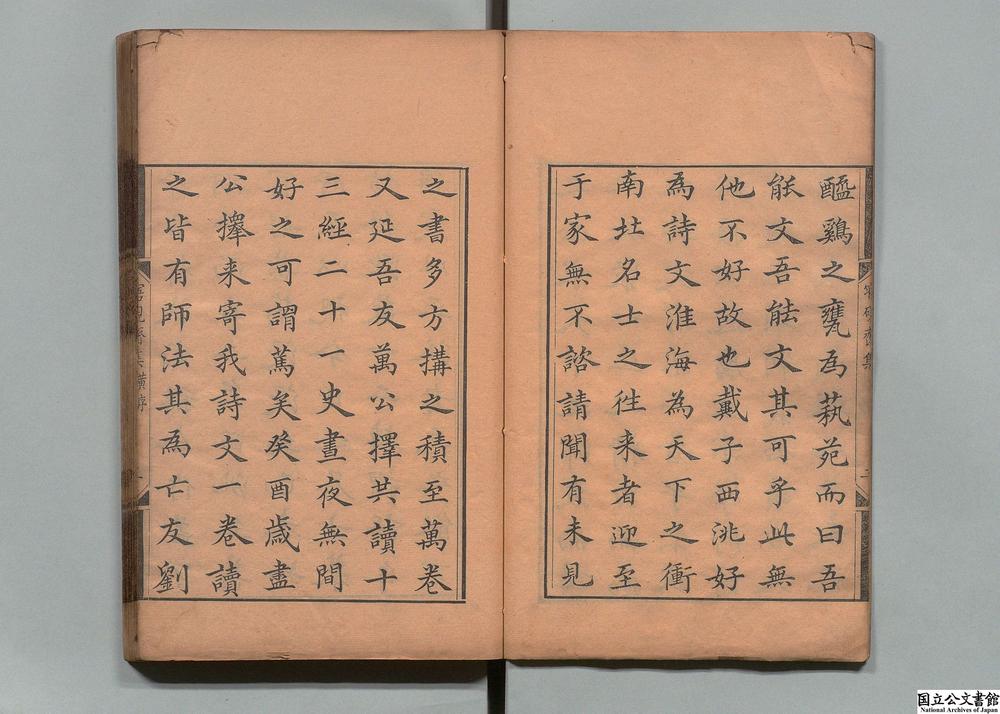 醯鷄之甕為蓺苑而曰吾
能文吾能文其可乎此無
他不好故也戴子西洮好
為詩文淮海為天下之衝
南北名士之徃来者迎至
于家無不諮請聞有未見
之書多方搆之積至萬卷
又延吾友萬公擇共讀十
三經二十一史晝夜無間
好之可謂篤矣癸酉歲盡
公擇来寄我詩文一卷讀
之皆有師法其為亡友劉
国立公文書館
National Archives of Japan